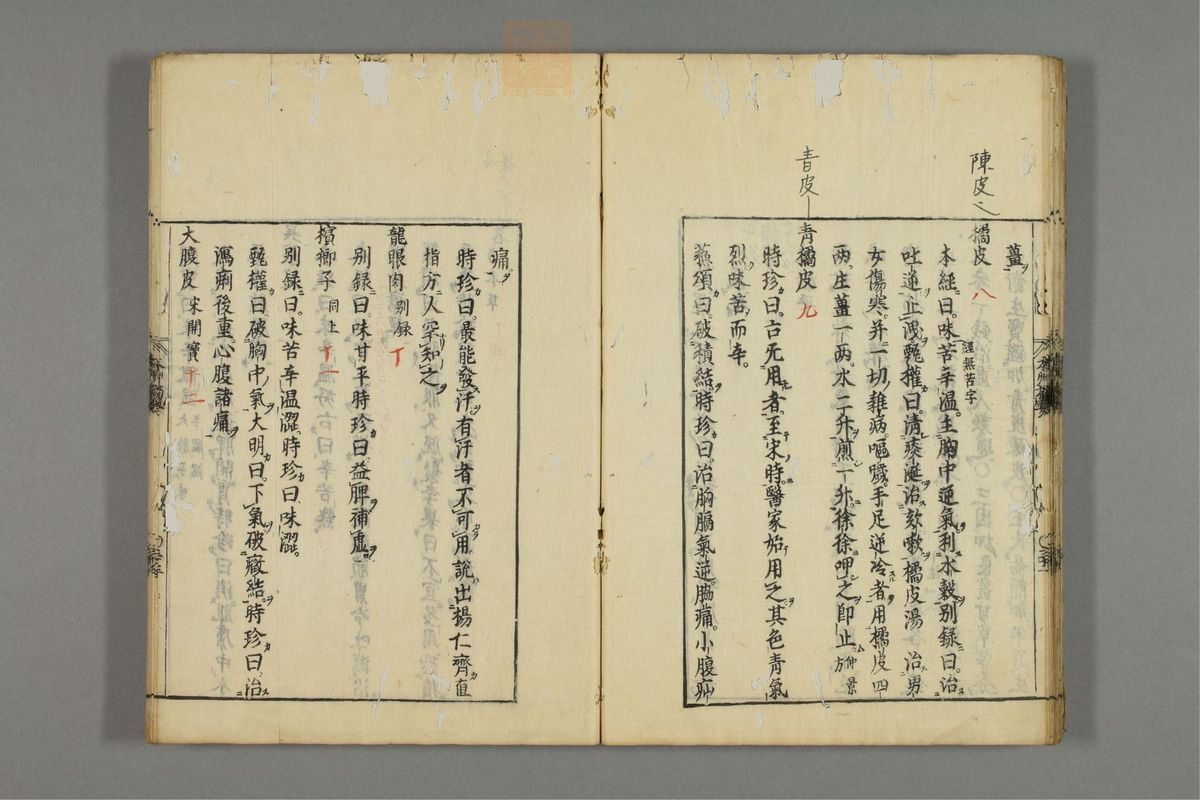 陳皮
青皮
薑
橘皮 八
本經曰味苦辛溫主胸中逆氣利水穀別録曰治
經無苦字
吐逆止洩甄權曰清痰涎治欬嗽橘皮湯 治男
女傷寒并一切雜病嘔噦手足逆冷者用橘皮四
两庄薑一两水二升煎一升徐徐呷之即止 仲景方
青橘皮 九
時珍曰古无用者至宋時醫家始用之其色青氣
烈味苦而辛
蘓頌曰破積結時珍曰治胸膈氣逆脇痛小腹疝
痛
時珍曰最能發汗有汗者不可用說出楊仁齊直
指方人罕知之
龍眼肉 別録 丁
別録曰味甘平時珍曰益脾補虛
檳榔子 同上 丁一
別録曰味苦辛温澀時珍曰味澀
甄權曰破胸中氣大明曰下氣破癥結時珍曰治
瀉痢後重心腹諸痛
大腹皮 宋開寳 十二